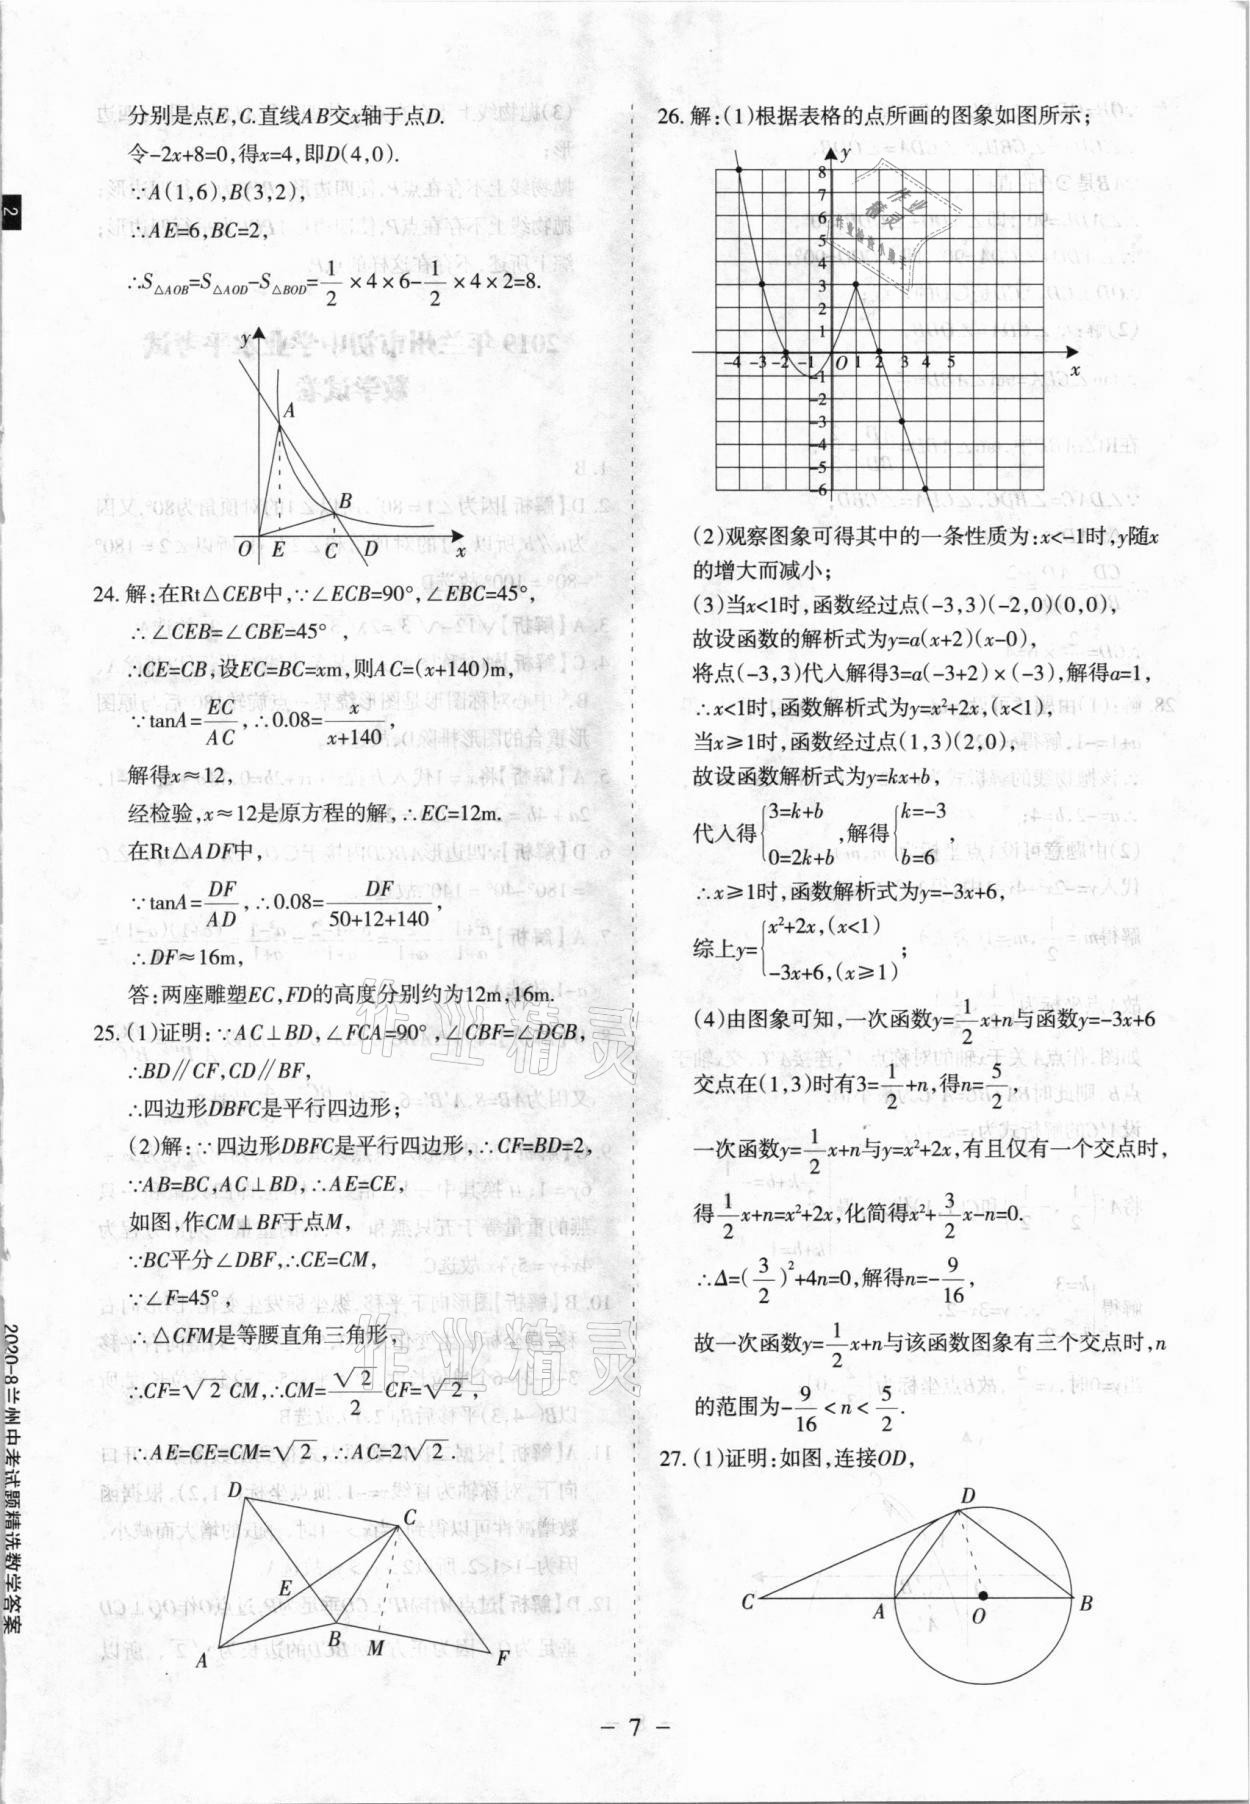 分别是点E,C.直线AB交x轴于点D.
令-2x+8=0,得x=4,即D(4,0).
∵A(1,6),B(3,2),
∴AE=6,BC=2,
∴S△AOB=S△AOD-S△BOD=1/2×4×6-1/2×4×2=8.
y
A
B
O E C D x
24.解:在Rt△CEB中,∵∠ECB=90°,∠EBC=45°,
∴∠CEB=∠CBE=45°,
∴CE=CB,设EC=BC=xm,则AC=(x+140)m,
∵tanA=EC/AC,∴0.08=x/(x+140),
解得x≈12,
经检验,x≈12是原方程的解,∴EC=12m.
在Rt△ADF中,
∵tanA=DF/AD,∴0.08=DF/(50+12+140),
∴DF≈16m,
答:两座雕塑EC,FD的高度分别约为12m,16m.
25.(1)证明:∵AC⊥BD,∠FCA=90°,∠CBF=∠DCB,
∴BD∥CF,CD∥BF,
∴四边形DBFC是平行四边形;
(2)解:∵四边形DBFC是平行四边形,∴CF=BD=2,
∵AB=BC,AC⊥BD,∴AE=CE,
如图,作CM⊥BF于点M,
∵BC平分∠DBF,∴CE=CM,
∵∠F=45°,
∴△CFM是等腰直角三角形,
∴CF=√2CM,∴CM=√2/2CF=√2,
∴AE=CE=CM=√2,∴AC=2√2.
D
C
E
B
M
A
F
26.解:(1)根据表格的点所画的图象如图所示;
y
8
7
6
5
4
3
2
1
-4 -3 -2 -1 O 1 2 3 4 5 x
-1
-2
-3
-4
-5
-6
(2)观察图象可得其中的一条性质为:x<-1时,y随x
的增大而减小;
(3)当x<1时,函数经过点(-3,3)(-2,0)(0,0),
故设函数的解析式为y=a(x+2)(x-0),
将点(-3,3)代入解得3=a(-3+2)×(-3),解得a=1,
∴x<1时,函数解析式为y=x²+2x,(x<1),
当x≥1时,函数经过点(1,3)(2,0),
故设函数解析式为y=kx+b,
代入得{3=k+b 0=2k+b,解得{k=-3 b=6,
∴x≥1时,函数解析式为y=-3x+6,
综上y={x²+2x,(x<1) -3x+6,(x≥1);
(4)由图象可知,一次函数y=1/2x+n与函数y=-3x+6
交点在(1,3)时有3=1/2+n,得n=5/2,
一次函数y=1/2x+n与y=x²+2x,有且仅有一个交点时,
得1/2x+n=x²+2x,化简得x²+3/2x-n=0.
∴Δ=(3/2)²+4n=0,解得n=-9/16,
故一次函数y=1/2x+n与该函数图象有三个交点时,n
的范围为-9/16<n<5/2.
27.(1)证明:如图,连接OD,
D
C
A
O
B
- 7 -
2
2020-8兰州中考试题精选数学答案
作业精灵
作业精灵